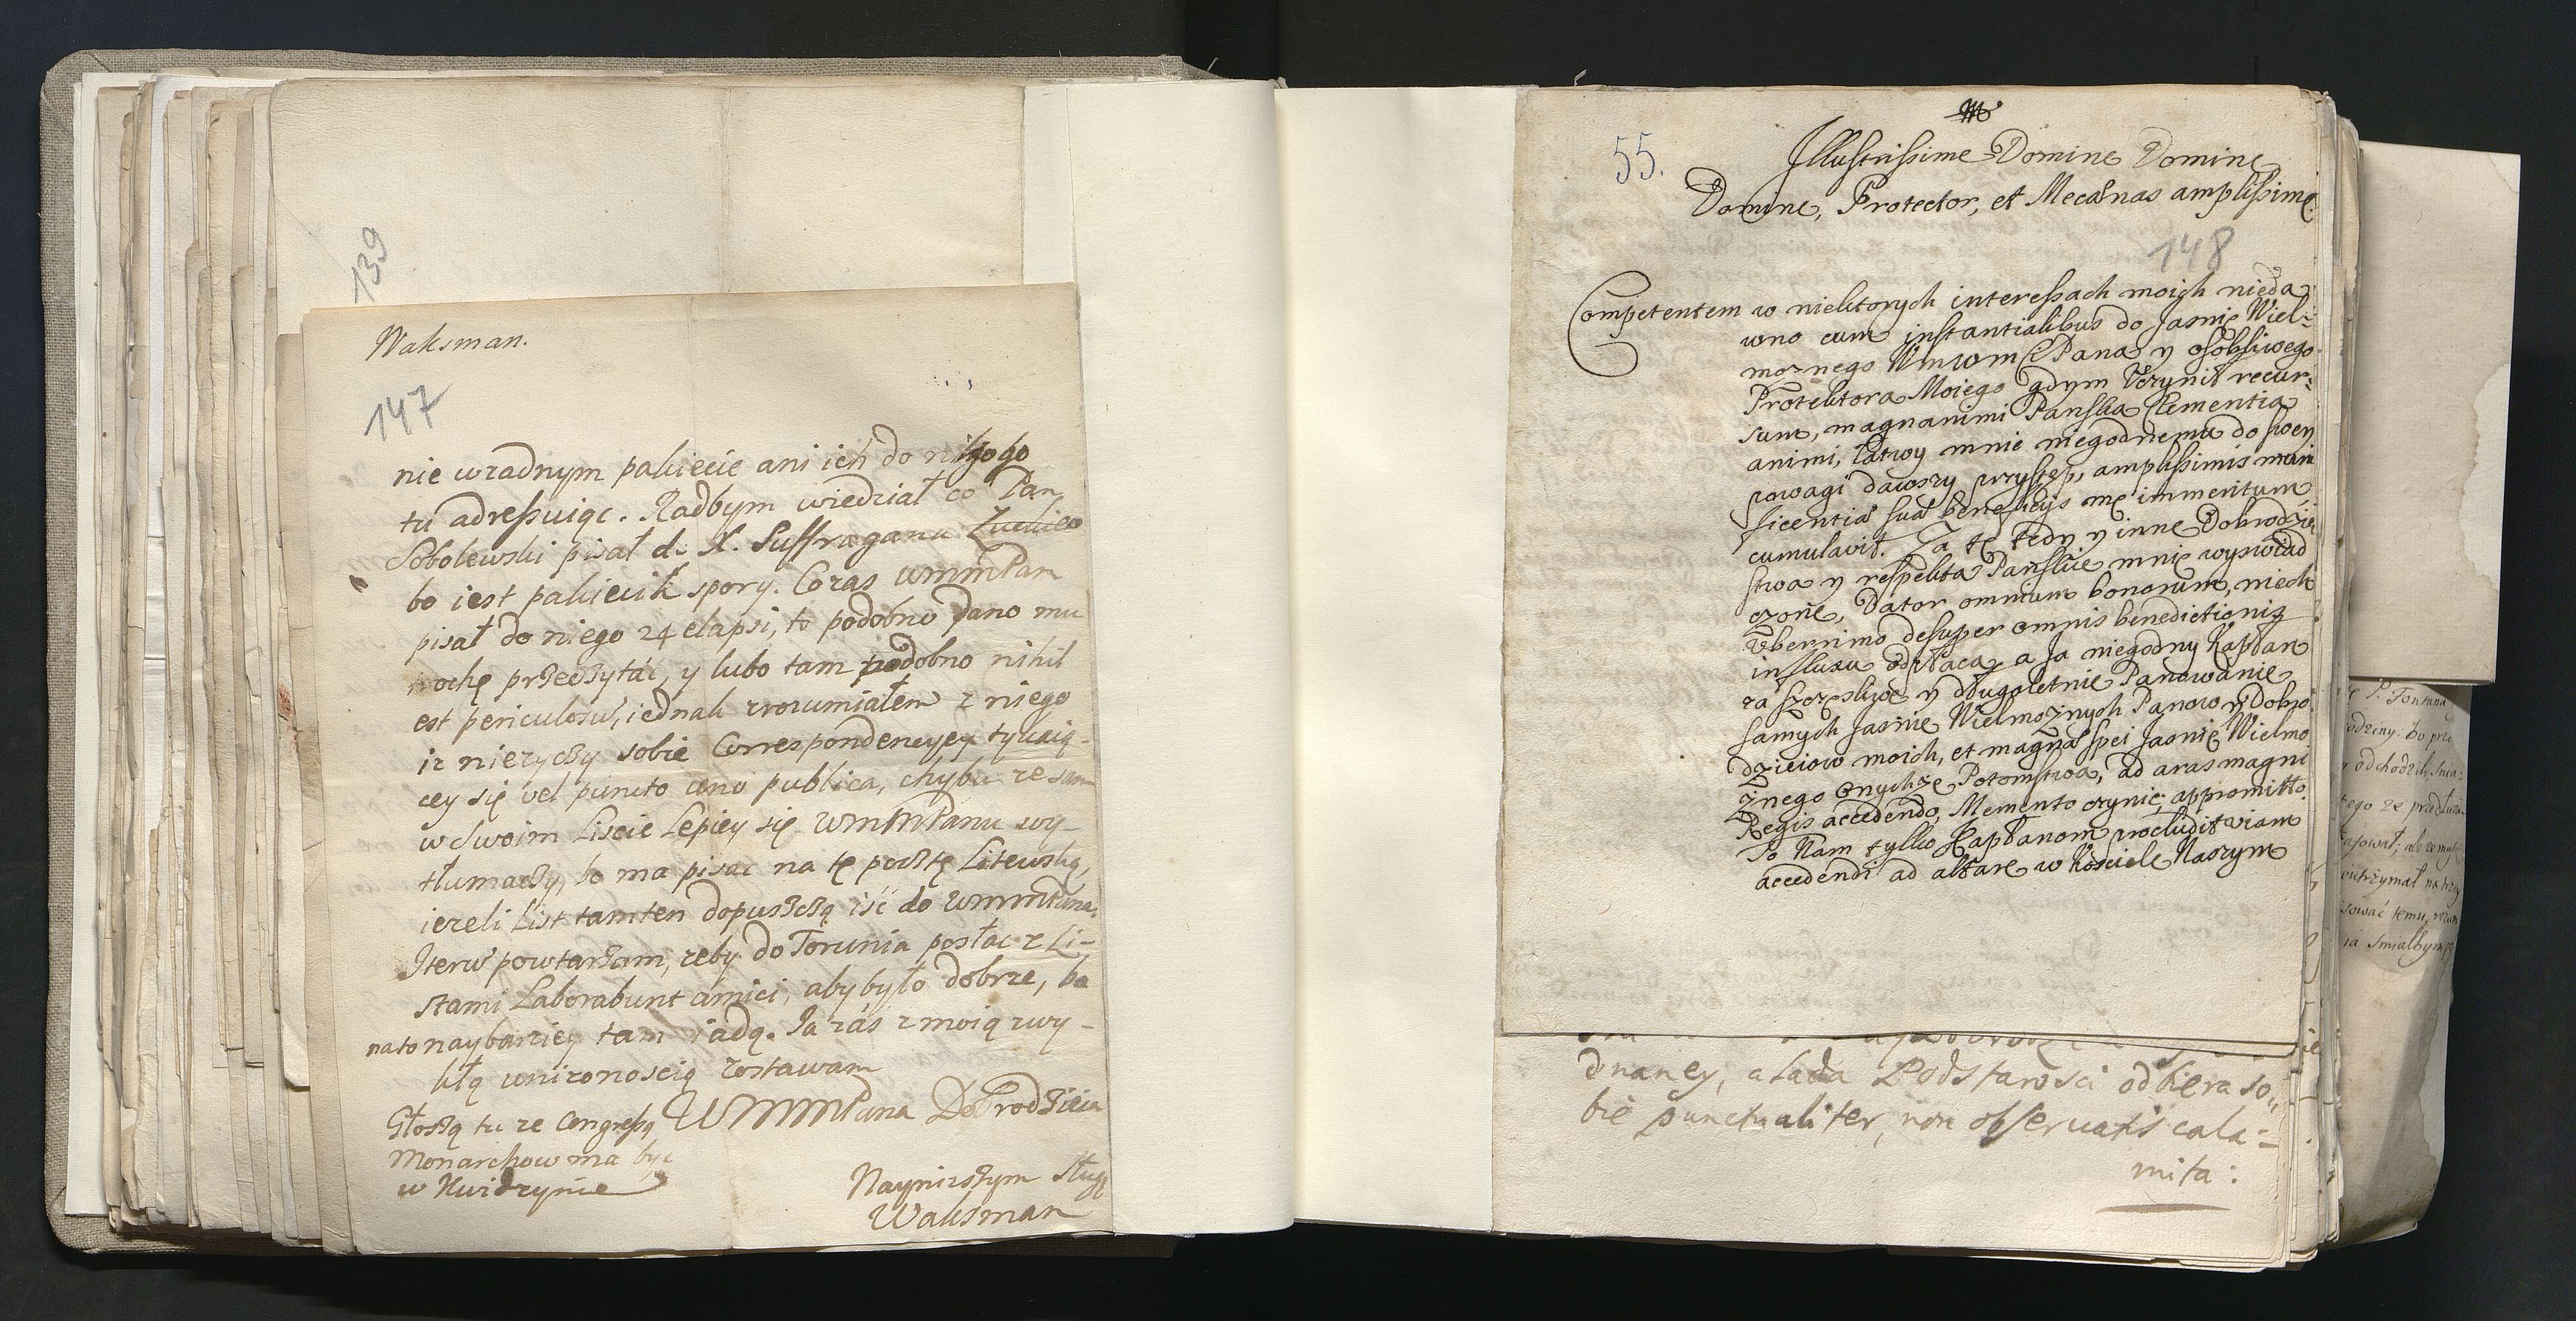 139
Waksman.
147
nie wzadnym pakiecie ani ich do nikogo
tu adressuiąc. Radbym wiedział co Pan
Sobolewski pisał do X. Suffragana
bo iest pakiecik spory. Coras WMMPan
pisał do niego 24 elapsi, to podobno dano mu
trochę przeczytać, y lubo tam podobno nihil
est periculosũ, iednak zrozumiałem z niego
iz nierzyczy sobie Correspondencyey tykaią-
cey się vel puncto uno publica, chyba ze sam
w swoim Liscie Lepiey się WMMPanu wy-
tłumaczy, bo ma pisac na tę pocztę Litewską,
iezeli List tamten dopuszczą iść do WMMPana.
Iterũ powtarzam, zeby do Torunia posłac z Li-
stami Laborabunt amici, aby było dobrze, bo
na to naybarziey tam iadą. Ja zás z moią zwy-
kłą unizonoscią zostawam
WMMPana Dobrodzieia
Głoszą tu ze Congressą
Monarchow ma być
w Kwidzynie
Nayniszszym Sługą
Waksman
55.
Illustrissime Domine Domine
Domine, Protector, et Mecænas amplissime.
148
Competentem w niektorych interessach moich nieda
wno cum instantialibus do Jasnie Wiel-
moznego Wmwm Pana y osobliwego
Protektora Moiego gdym Uczynił recur-
sum, magnanimi Panska Clementia
animi, łatwy mnie niegodnemu do swey
powagi dawszy przystęp, amplissimis muni
ficentiæ suæ beneficijs me immeritum
cumulavit. Za te tedy y inne Dobrodziey
stwa y respekta Panskie mnie wyswiad
czone, Dator omnium bonorum, niech
Uberrimo desuper omnis benedictionis
influxu odpłaca, a Ja niegodny Kapłan
za szczęsliwe y długoletnie Panowanie
samych Jasnie Wielmoznych Panow y Dobro
dzieiow moich, et magnæ spei Jasnie Wielmo
znego Onychze Potomstwa, ad aras magni
Regis accedendo, Memento czynic appromitto.
To Nam tylko Kapłanom procludit viam
accedendi ad altare w Kosciele Naszym
dnaney, a lada Podstarosci odbiera so„
bie punctualiter, non observatis cala-
mita:
P. Fontana